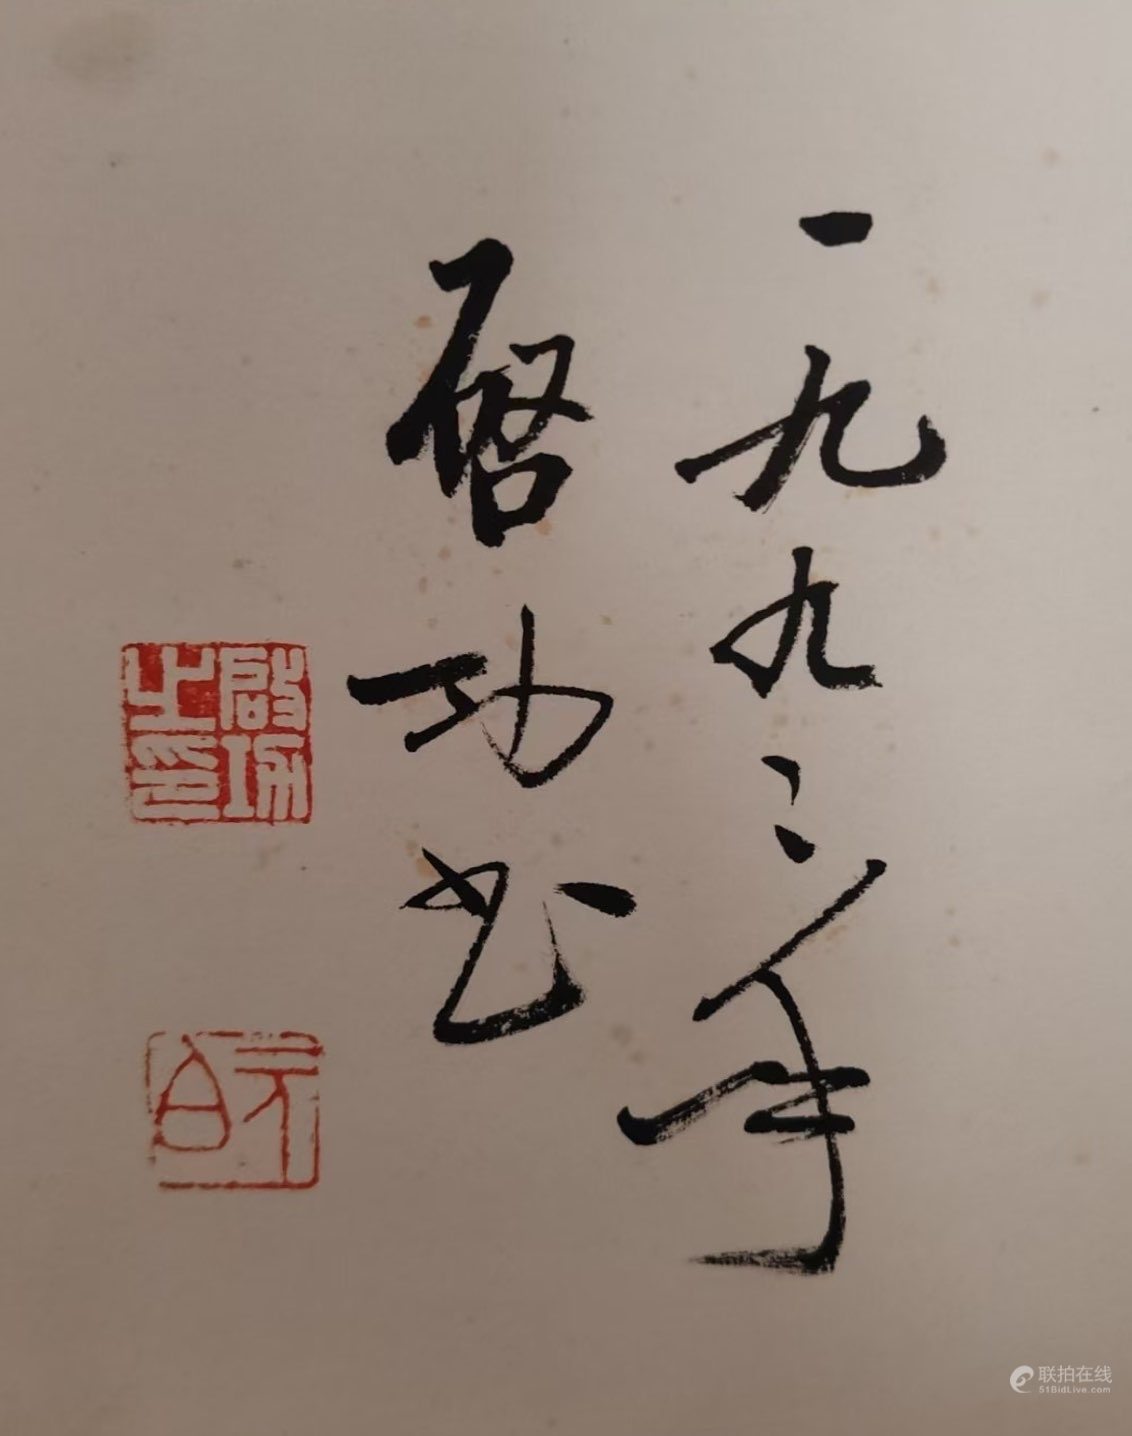 一九九二年
启功书
启功之印
元白
联拍在线
51BidLive.com